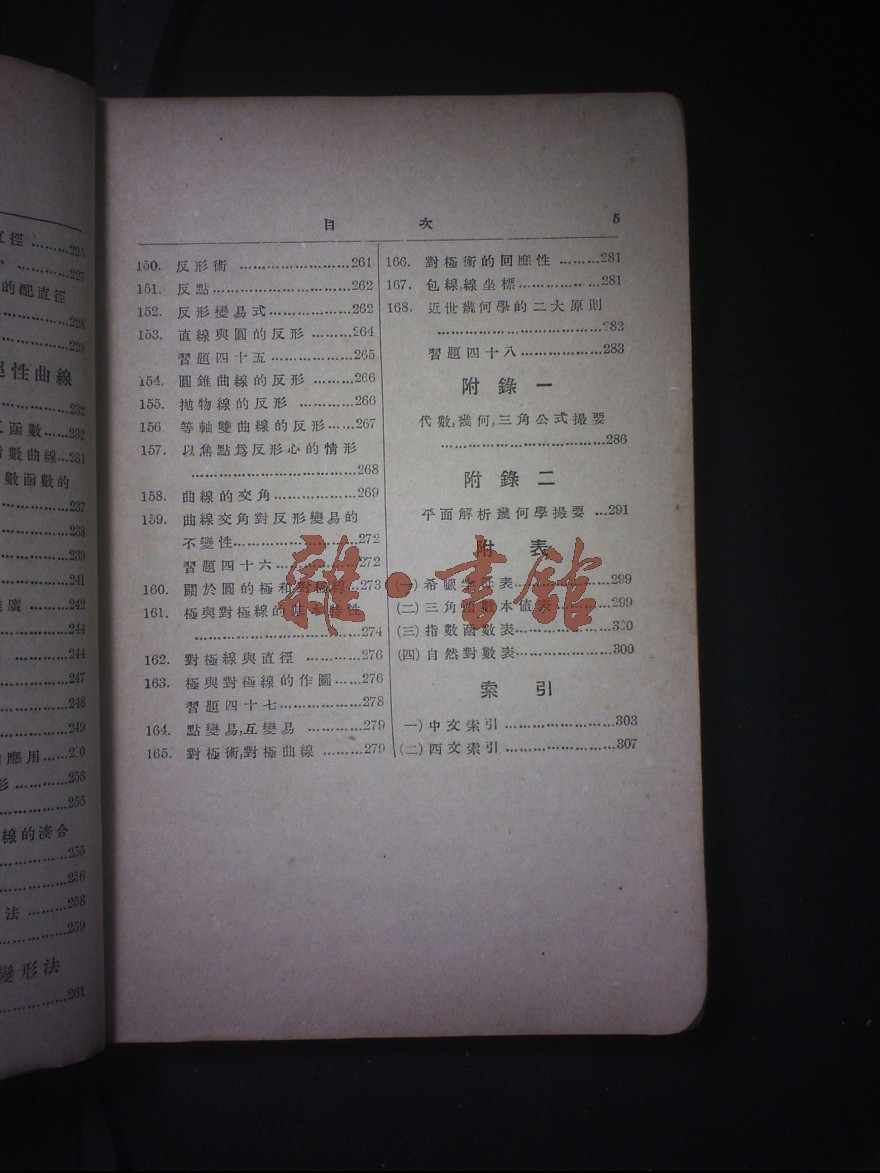 直徑 ………225
………227
的配直徑
………228
………229
性曲線
………232
函數……232
數曲線…234
數函數的
………237
………238
………239
………241
廣 ………242
………244
………244
………247
………248
………249
應用……
形 ………253
………255
線的湊合
………255
………256
法 ………258
………259
變形法
………261
目 次 5
150. 反形術 ………261
151. 反點 ………262
152. 反形變易式 ………262
153. 直線與圓的反形 ………264
習題四十五 ………265
154. 圓錐曲線的反形 ………266
155. 拋物線的反形 ………266
156 等軸雙曲線的反形 ……267
157. 以焦點爲反形心的情形
………268
158. 曲線的交角 ………269
159. 曲線交角對反形變易的
不變性 ………272
習題四十六 ………272
160. 關於圓的極和對極線 …273
161. 極與對極線的基本特性
………274
162. 對極線與直徑 ………276
163. 極與對極線的作圖 ……276
習題四十七 ………278
164. 點變易,互變易 ………279
165. 對極術,對極曲線 ………279
166. 對極術的回應性 ………281
167. 包線,線坐標 ………281
168. 近世幾何學的二大原則
………282
習題四十八 ………283
附錄一
代數,幾何,三角公式撮要
………286
附錄二
平面解析幾何學撮要 …291
附 表
(一)希臘字母表 ………299
(二)三角函數本值表 ………299
(三)指數函數表 ………300
(四)自然對數表 ………300
索 引
一)中文索引 ………303
(二)西文索引 ………307
雜·書館